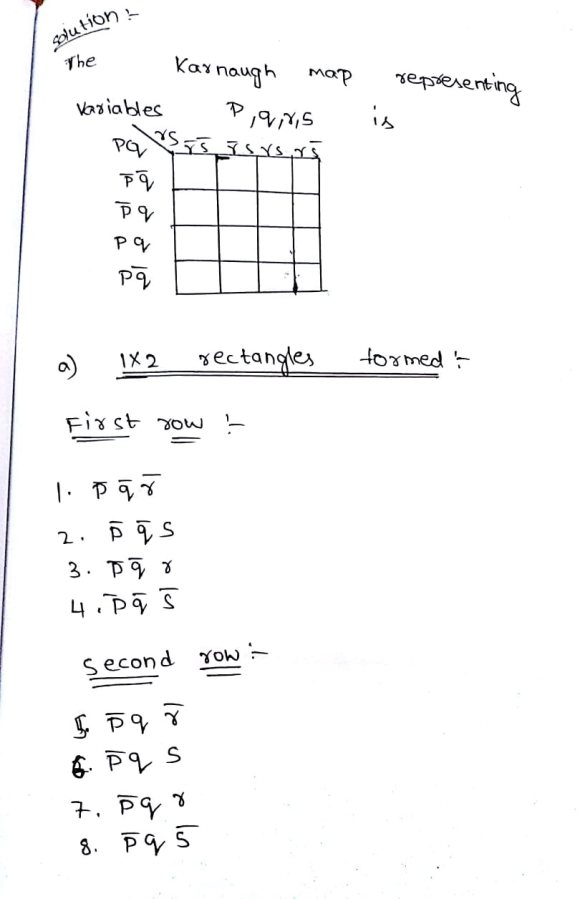 solution :-
The Karnaugh map representing
Variables P,q,r,s is
pq rs r̄s̄ r̄s rs rs̄
p̄q̄
p̄q
pq
pq̄
a) 1×2 rectangles formed :-
First row :-
1. p̄ q̄ r̄
2. p̄ q̄ s
3. p̄q̄ r
4. p̄q̄ s̄
Second row :-
5. p̄q r̄
6. p̄q s
7. p̄q r
8. p̄q s̄